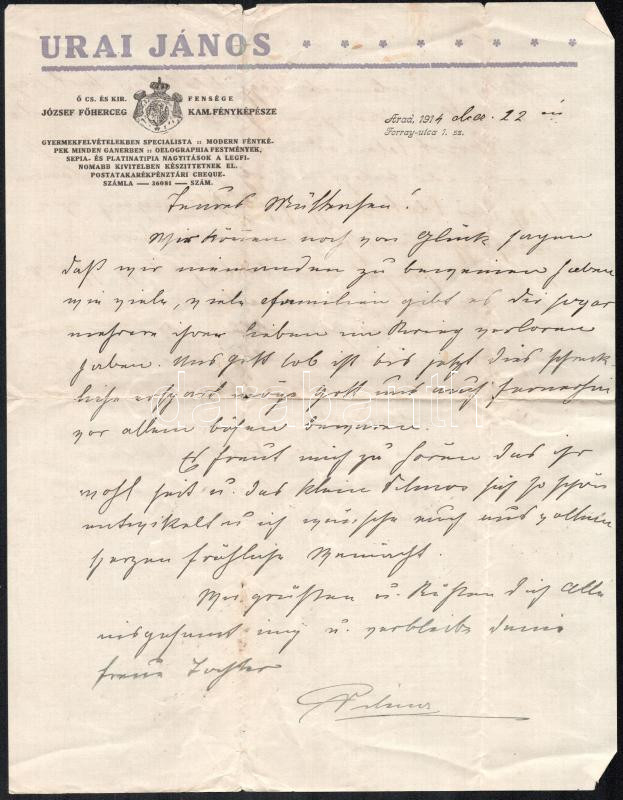 URAI JÁNOS
Ő CS. ÉS KIR. FENSÉGE
JÓZSEF FŐHERCEG KAM. FÉNYKÉPÉSZE
GYERMEKFELVÉTELEKBEN SPECIALISTA :: MODERN FÉNYKÉ-
PEK MINDEN GANERBEN :: OELOGRAPHIA FESTMÉNYEK,
SEPIA- ÉS PLATINATIPIA NAGYITÁSOK A LEGFI-
NOMABB KIVITELBEN KÉSZITTETNEK EL.
POSTATAKARÉKPÉNZTÁRI CHEQUE-
SZÁMLA — 26081 — SZÁM.
Arad, 1914 dec. 22 én
Forray-utca 1. sz.
Teures Mütterchen!
Wir können noch von Glück sagen
daß wir niemanden zu beweinen haben
wie viele, viele Familien gibt es die sogar
mehrere ihrer lieben im Krieg verloren
haben. Uns Gott lob ist bis jetzt dies schreck-
liche erspart möge Gott uns auch fernerhin
vor allem bösen bewaren.
Es freut mich zu hören das ihr
wohl seit u. das klein Vilmos sich so schön
entwikelt u ich wünsche euch aus vollem
Herzen fröhliche Weinacht.
Wir grüßen u. küßen dich Alle
u. verbleibe deine
treue Tochter
Vilma
darabanth